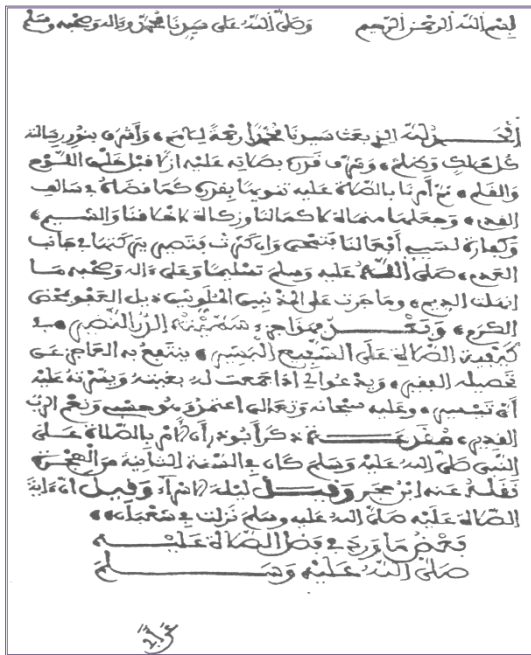 بسم الله الرحمن الرحيم وصلى الله على سيدنا محمد وءاله وصحبه وسلم
الحمد لله الذي بعث سيدنا محمدا رحمة للعالم، وأشرق بنور رسالته
كل حالك وظلم، وشرف قدره بصلاته عليه أزلا قبل خلق اللوح
والقلم، ثم أمرنا بالصلاة عليه تنويها بقدره كما قضاه في سالف
القدم، وجعلها منماة لأعمالنا وزكاة لأخلاقنا والشيم،
وكفارة لسيء أفعالنا فتمحى وإن كثرت
العدم، صلى الله عليه وسلم تسليما وعلى ءاله وصحبه ما
انهلت الديم، وما جرت على الخد بل العفو بمحض
الكرم، وبعد
كيفية الصلاة على الشفيع المشفع، ينتفع به العاجز عن
تحصيله الفهم، ويدعو لي إذا جمعت له بغيته ويسرته عليه
أي تيسير، وعليه سبحانه وتعالى أعتمد وهو حسبي ونعم الرب
القديم، مقدمة ذكر أبو ذر أن الأمر بالصلاة على
النبي صلى الله عليه وسلم كان في السنة الثانية من الهجرة
نقله عنه ابن حجر وقيل ليلة الإسراء وقيل أن ءاية
الصلاة عليه صلى الله عليه وسلم نزلت في شعبان،
بعض ما ورد في فضل الصلاة عليه
صلى الله عليه وسلم